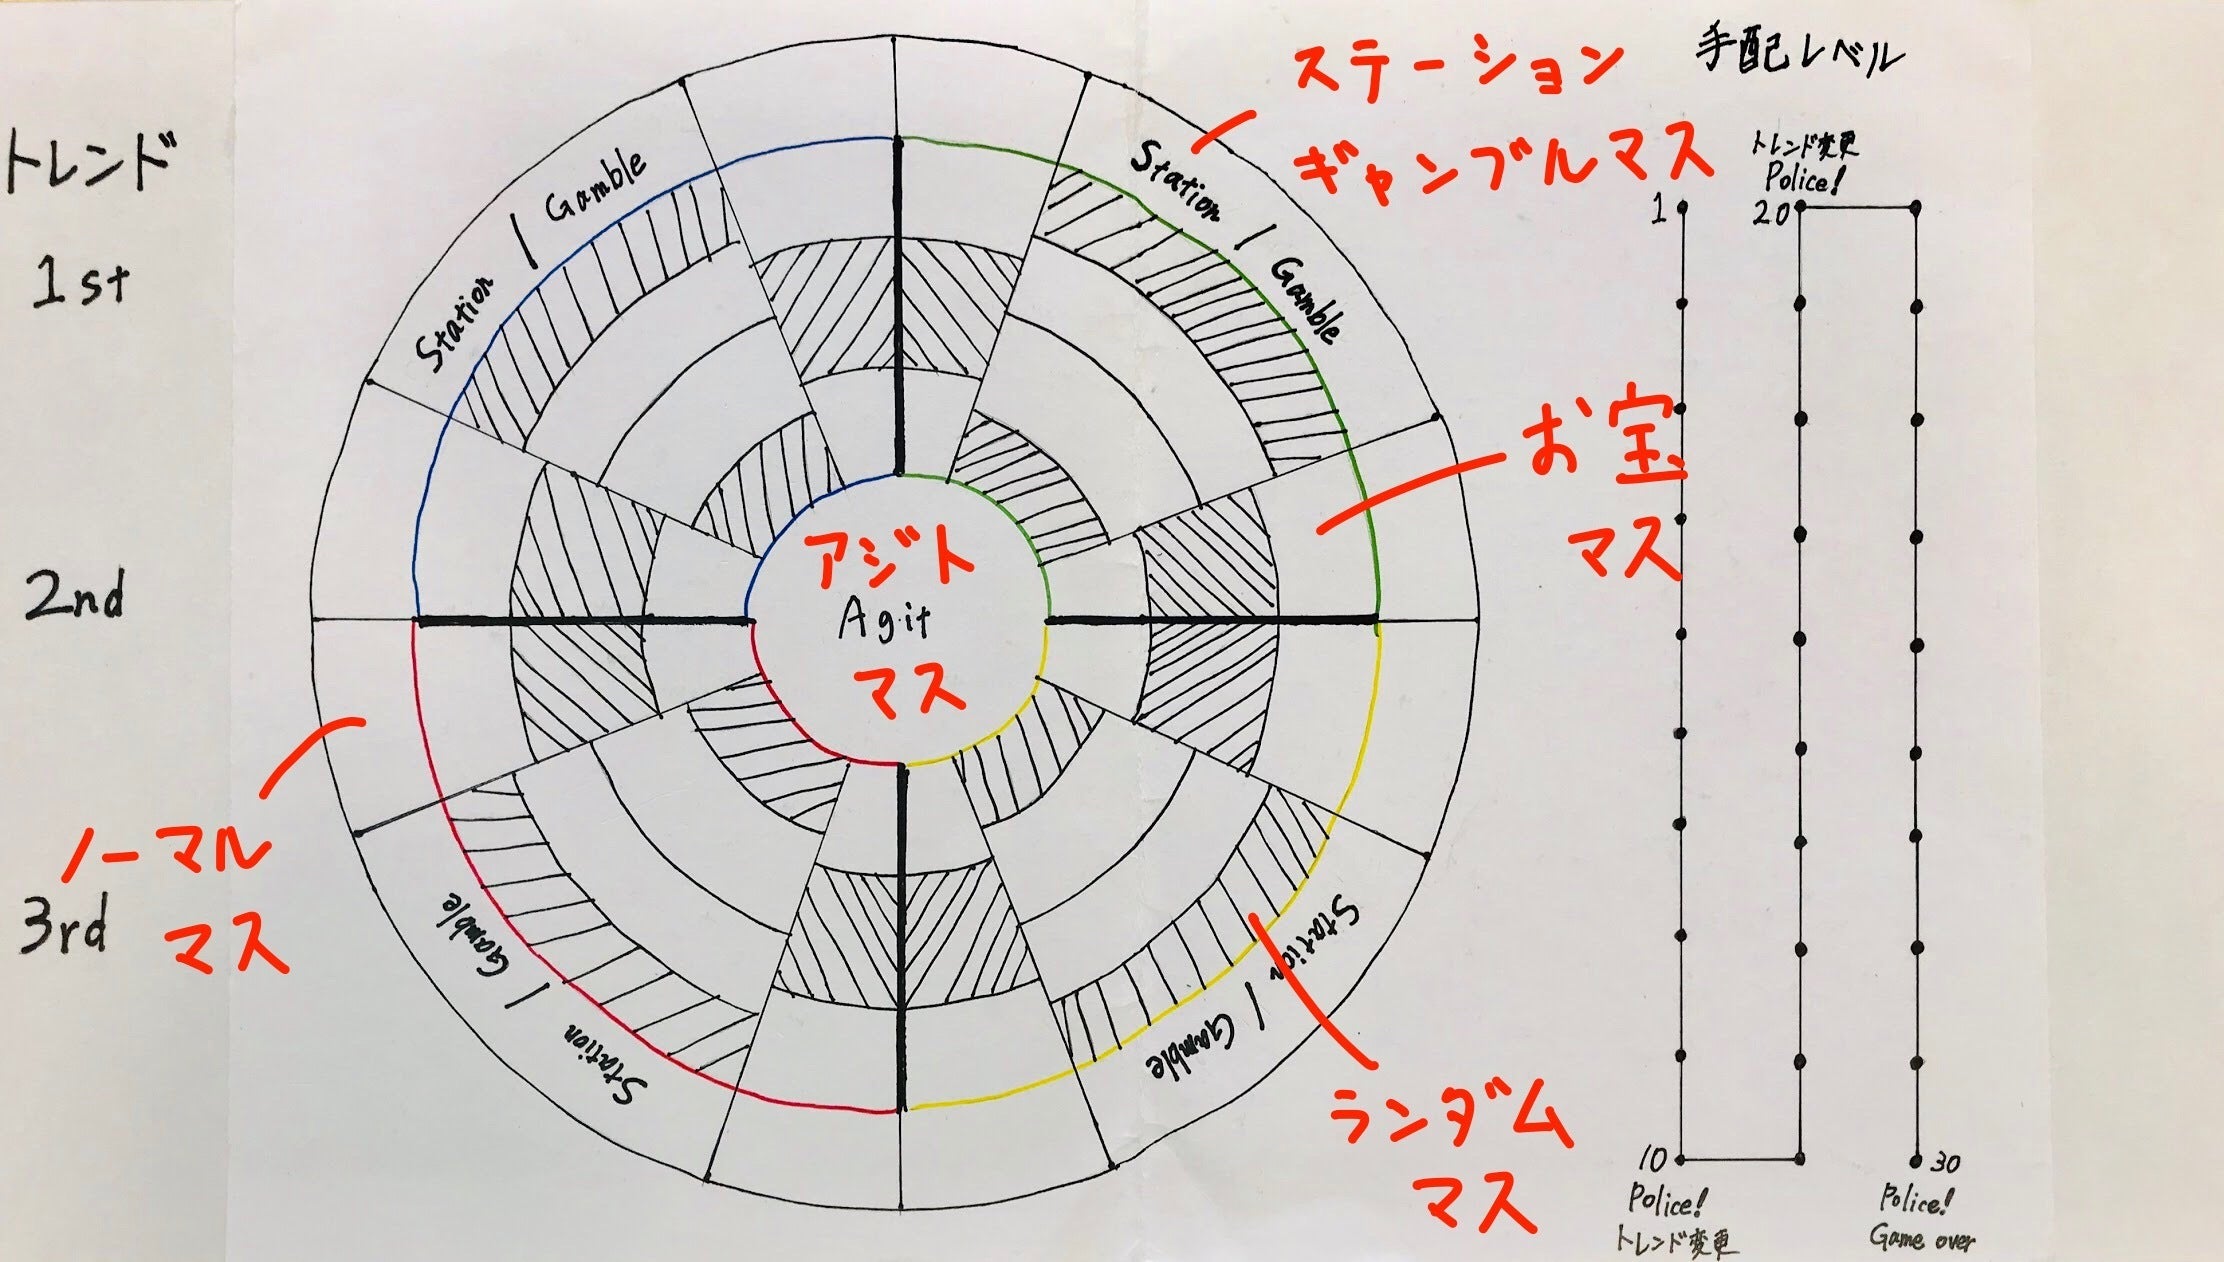 トレンド
1st
2nd
3rd
Station / Gamble
Station / Gamble
ステーション
ギャンブルマス
お宝
マス
アジト
Agit
マス
ノーマル
マス
Gamble / Station
Station / Gamble
ランダム
マス
手配レベル
トレンド変更
Police!
1
20
10
30
Police!
トレンド変更
Police!
Game over